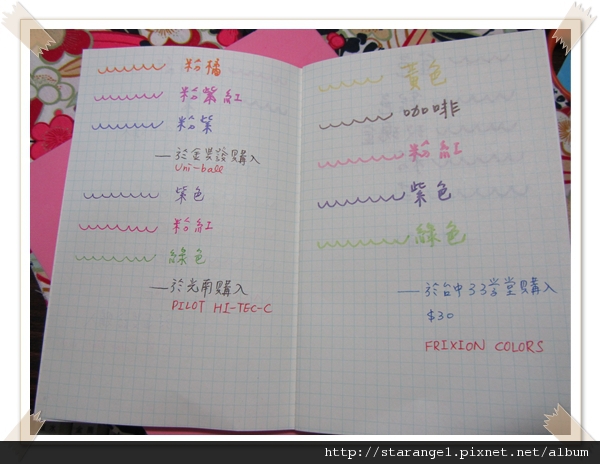 粉橘
粉紫紅
粉紫
—於金興發購入
Uni-ball
紫色
粉紅
綠色
—於光南購入
PILOT HI-TEC-C
黃色
咖啡
粉紅
紫色
綠色
—於台中33學堂購入
$30
FRIXION COLORS
http://starange1.pixnet.net/album